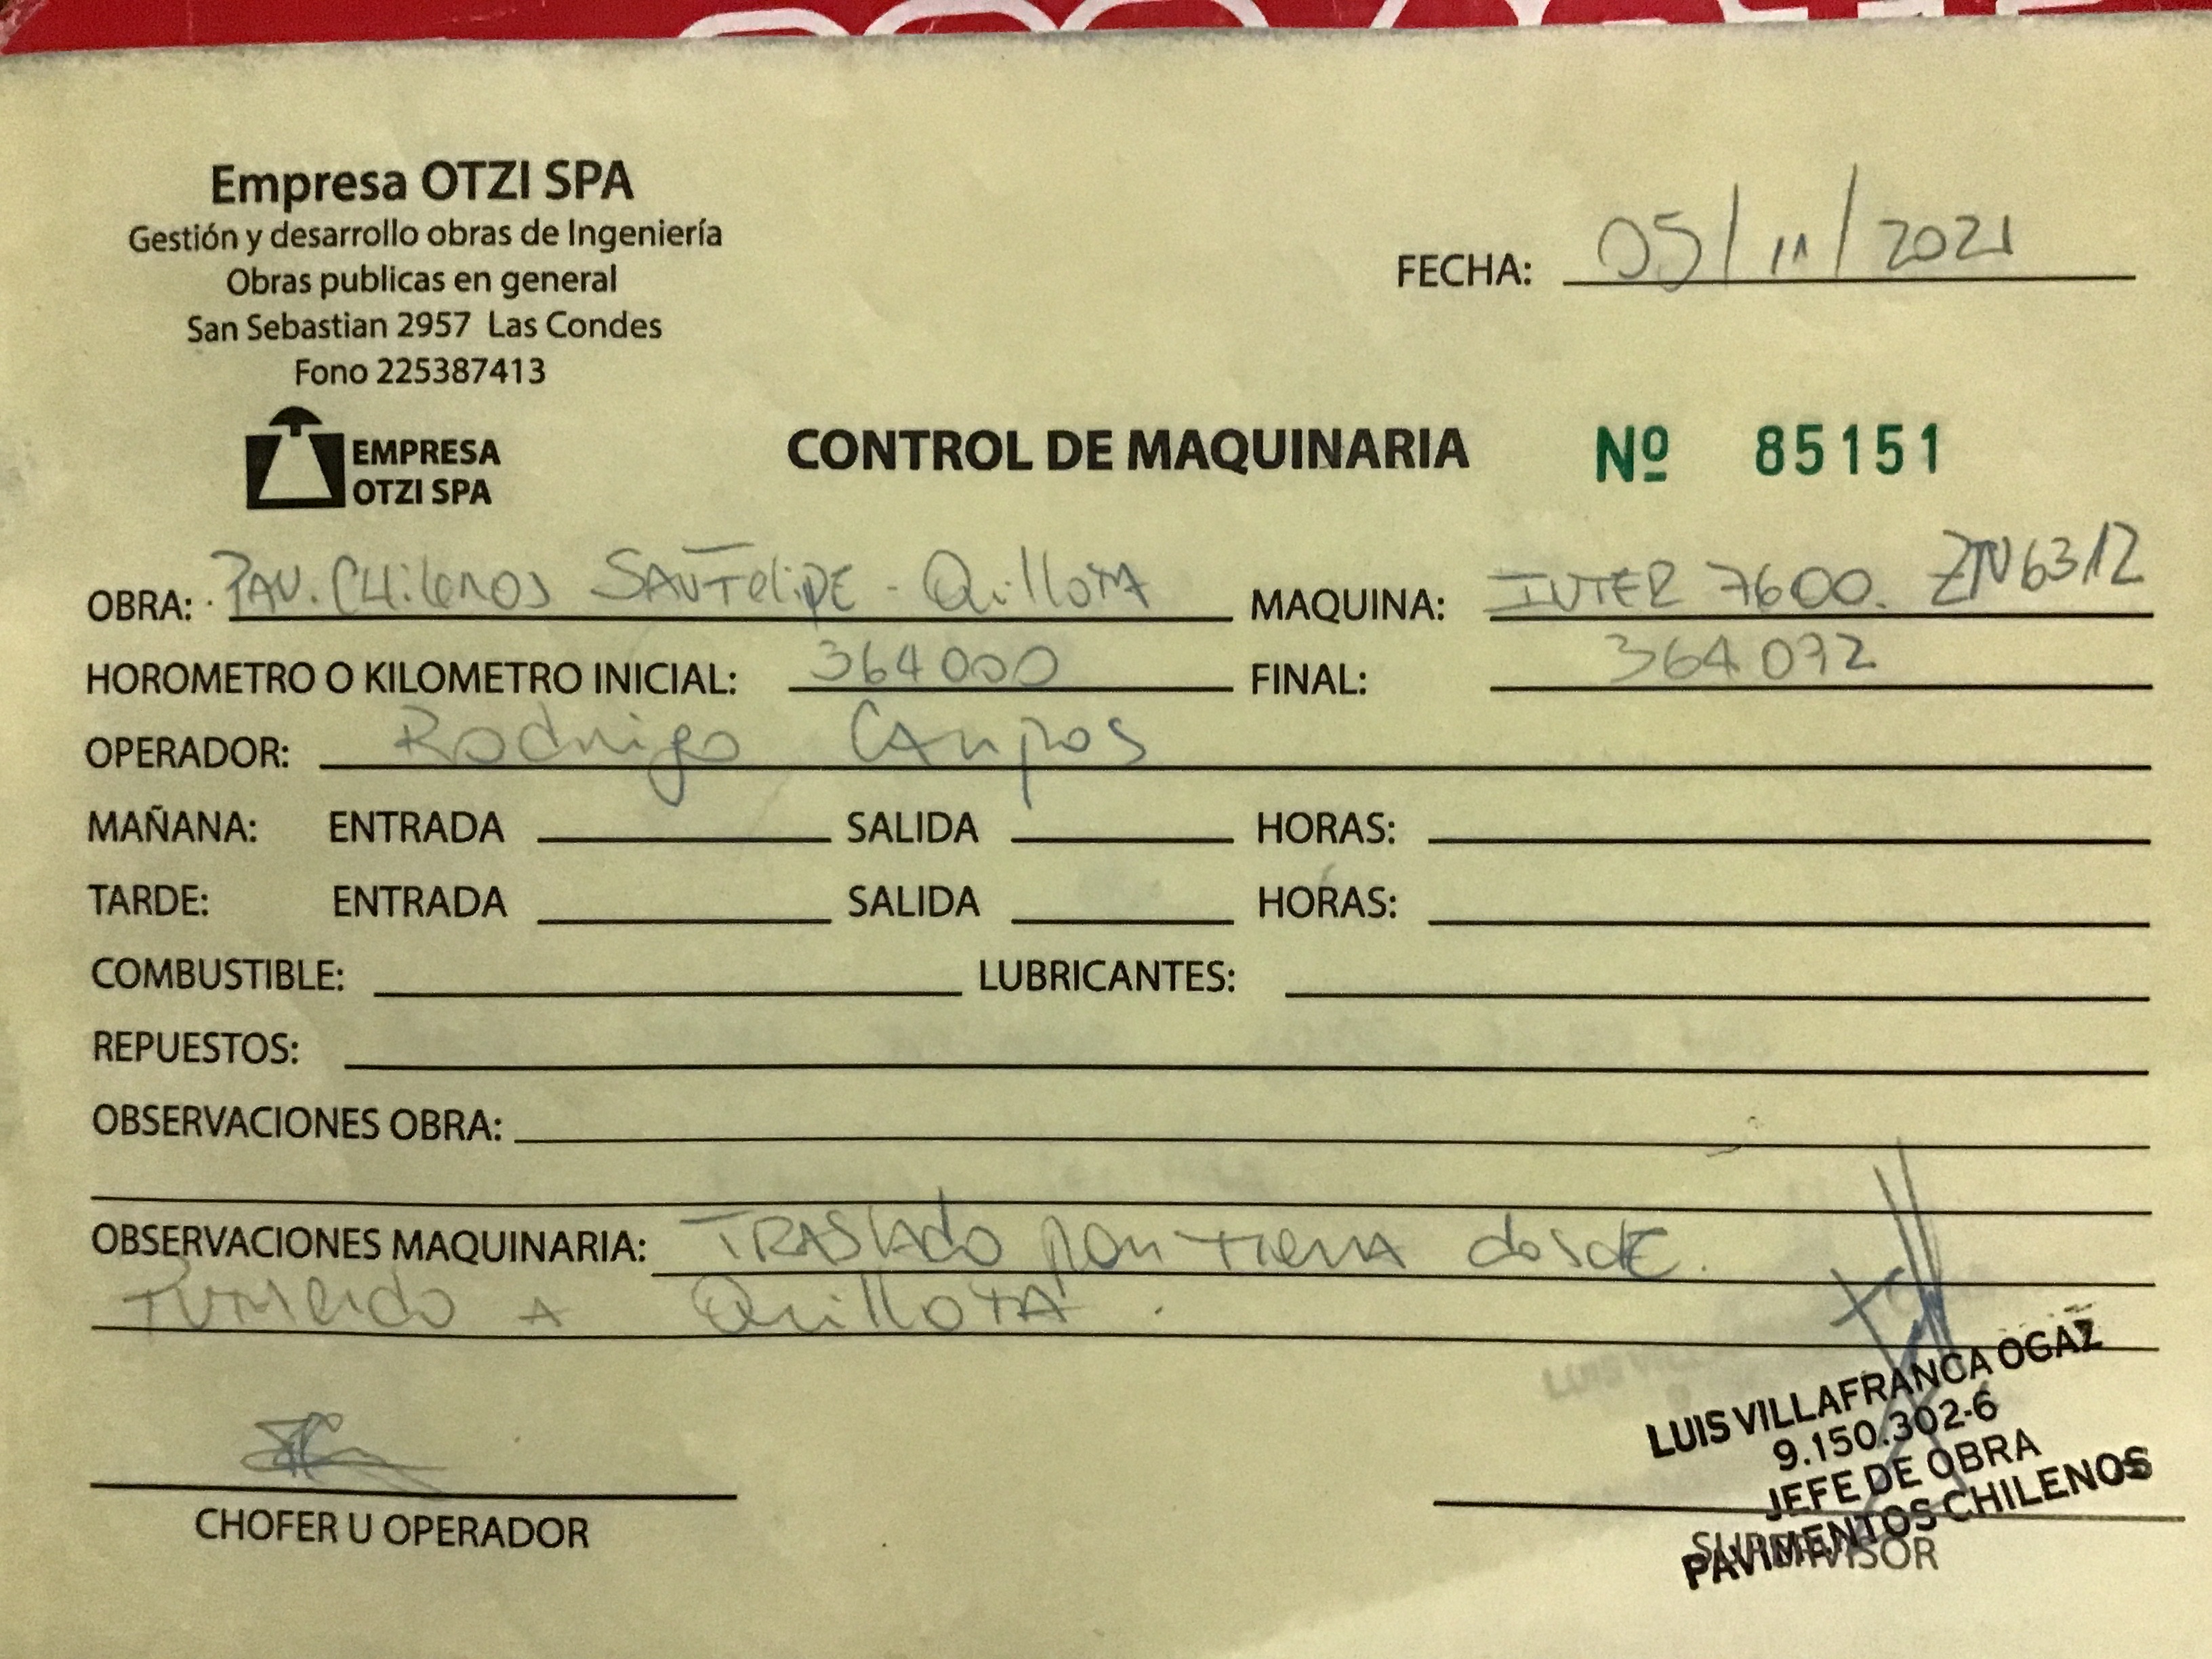 Empresa OTZI SPA
Gestión y desarrollo obras de Ingeniería
Obras publicas en general
San Sebastian 2957 Las Condes
Fono 225387413
FECHA: 05/11/2021
EMPRESA
OTZI SPA
CONTROL DE MAQUINARIA Nº 85151
OBRA: PAV. CHilenos SANFeliPE - Quillota MAQUINA: INTER 7600. ZN6312
HOROMETRO O KILOMETRO INICIAL: 364000 FINAL: 364092
OPERADOR: Rodrigo CAmpos
MAÑANA: ENTRADA SALIDA HORAS:
TARDE: ENTRADA SALIDA HORAS:
COMBUSTIBLE: LUBRICANTES:
REPUESTOS:
OBSERVACIONES OBRA:
OBSERVACIONES MAQUINARIA: TRASlAdo por tierra desde
A Quillota.
CHOFER U OPERADOR
LUIS VILLAFRANCA OGAZ
9.150.302-6
JEFE DE OBRA
PAVIMENTOS CHILENOS
SUPERVISOR